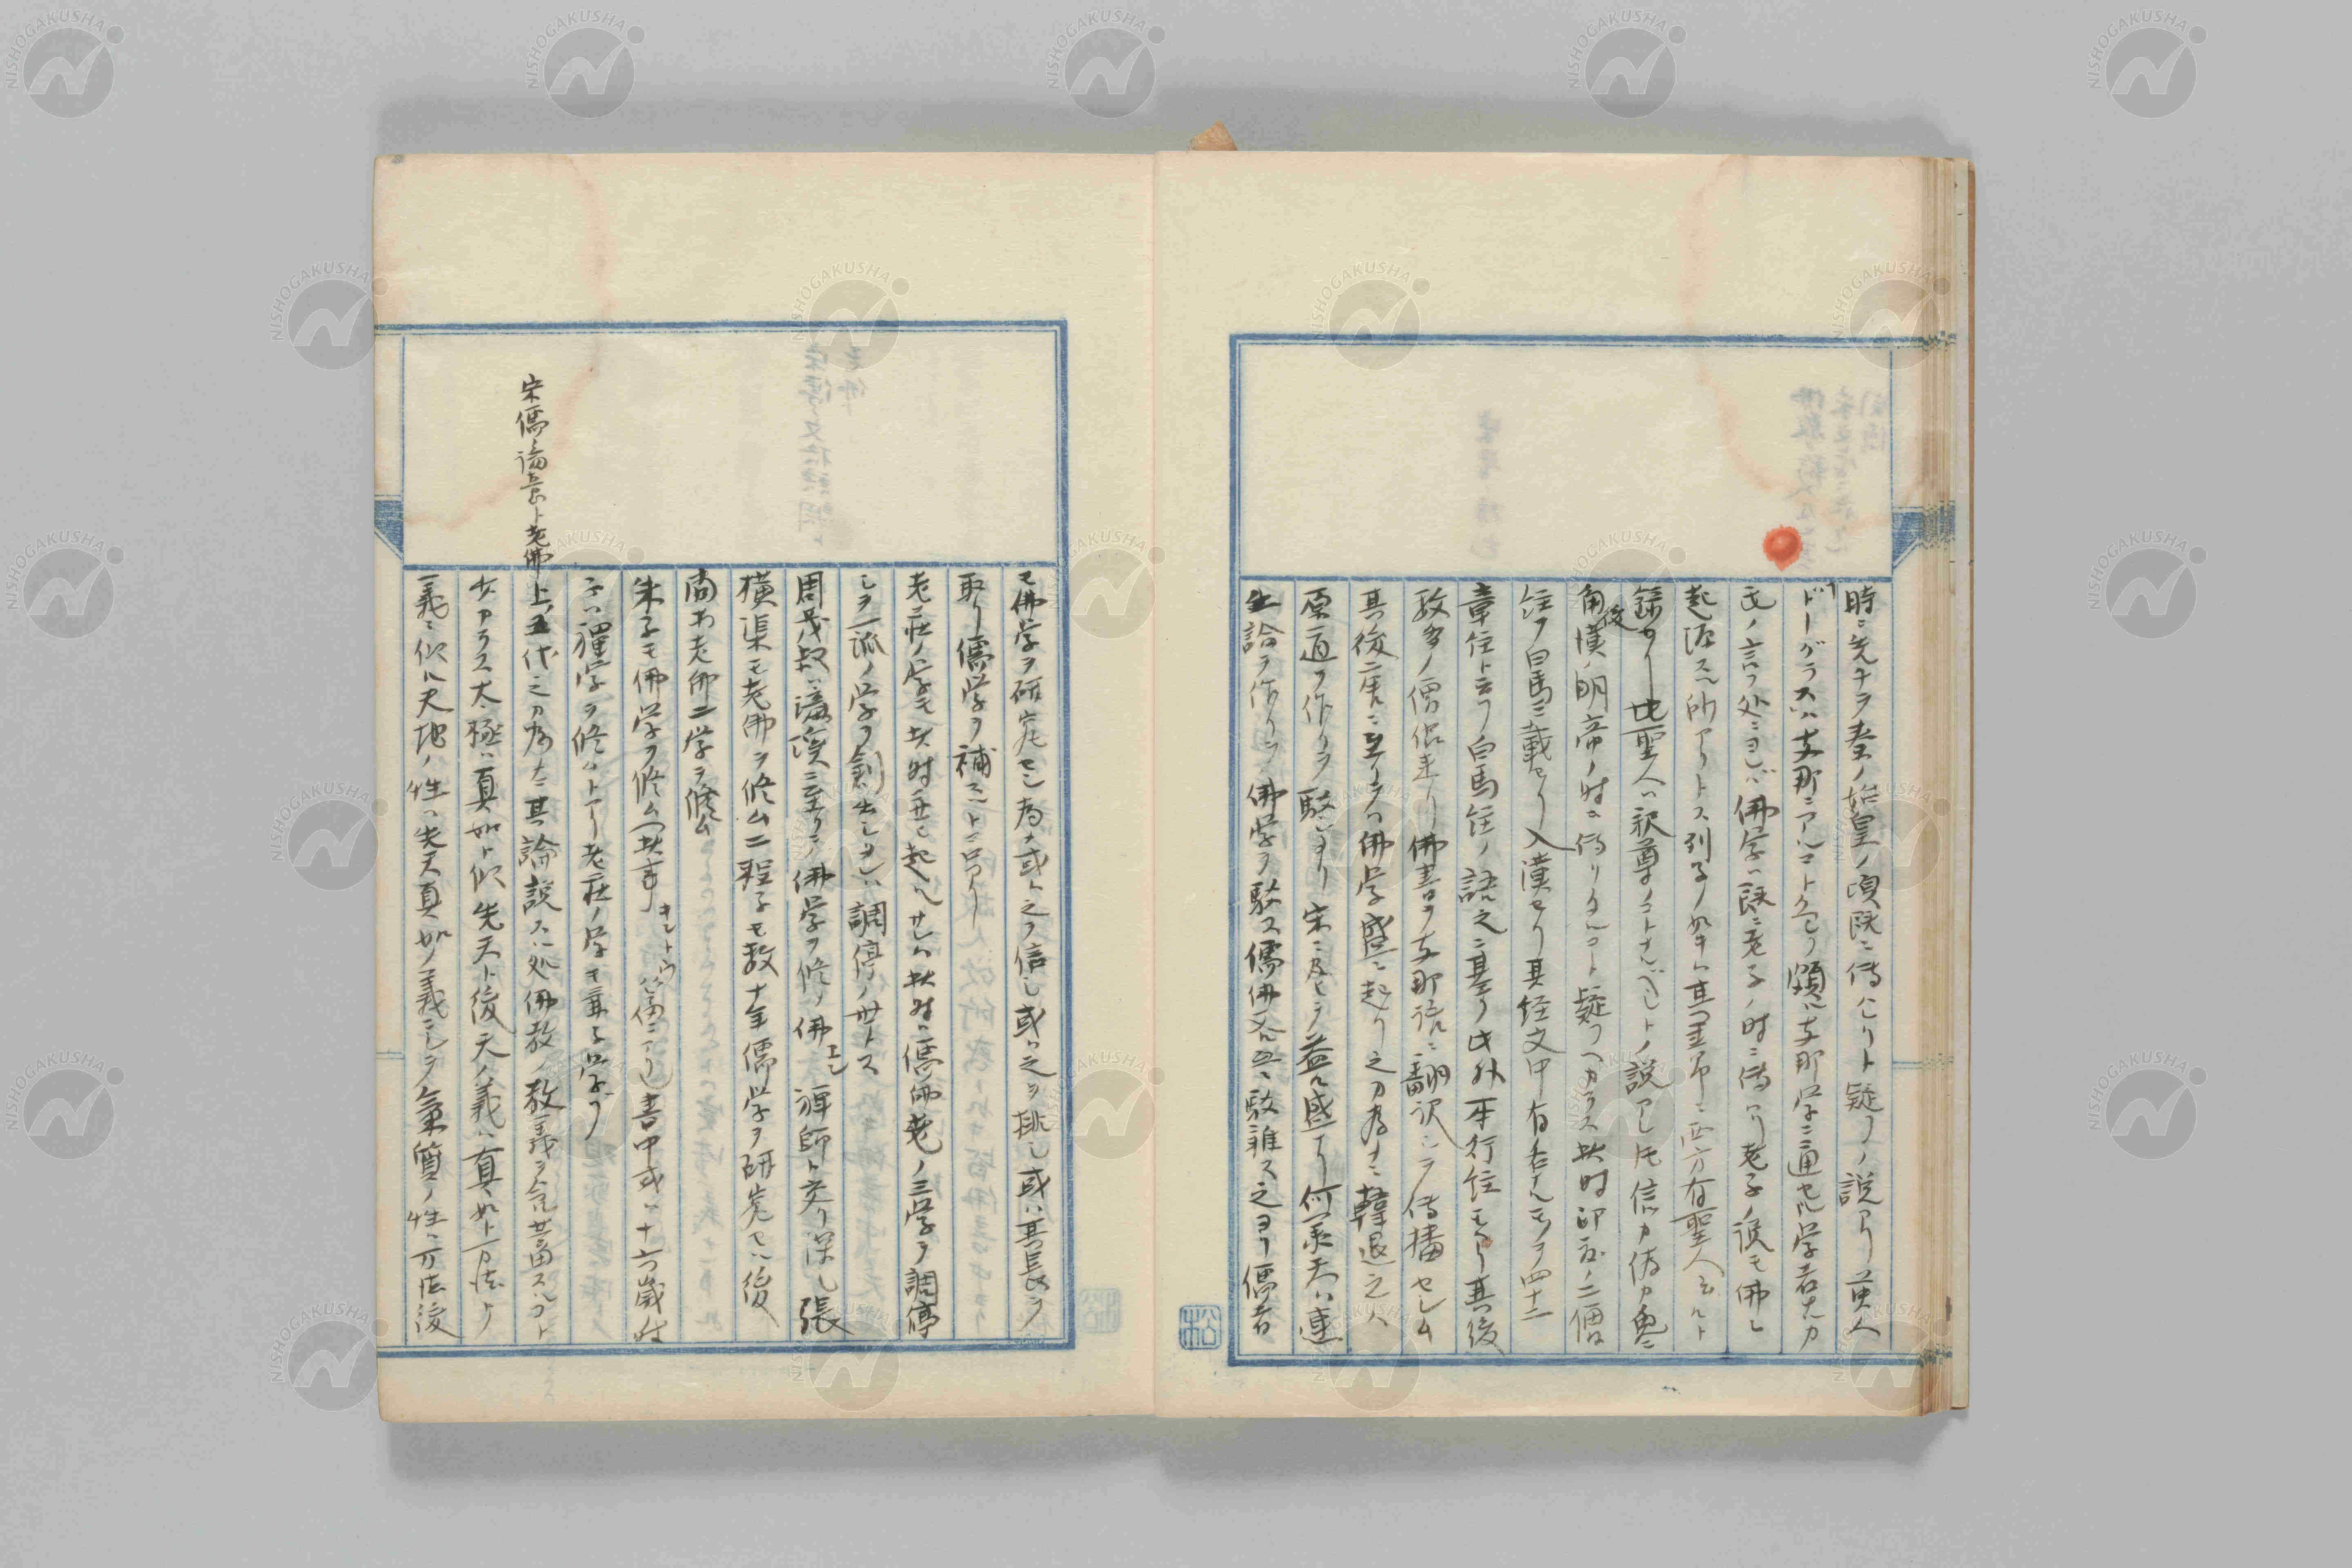 時ニ先チテ秦ノ始皇ノ頃既ニ傳ハレリト疑フノ説アリ英人
ドーグラスハ支那ニアルコト久シク頗ル支那学ニ通セル学者ナルカ
氏ノ言フ処ニヨレバ佛学ハ既ニ老子ノ時ニ傳ハリ老子ノ説モ佛ニ
起源スル所アリトス列子ノ如キハ其書中ニ西方有聖人云々ト
録セリ此聖人ハ釈尊ノコトナルベシトノ説アレ𪜈信カ偽カ兎ニ
角後漢ノ明帝ノ時ニ傳ハリタルコト疑フヘカラス此時印度ノ二僧
経ヲ白馬ニ載セリ入漢セリ其経文中有名ナルモノヲ四十二
章経ト云フ白馬経ノ語之ニ基ク此外本行経モアリ其後
数多ノ僧侶来リ佛書ヲ支那語ニ翻訳シテ傳播セシム
其後唐ニ至リテハ佛学盛ニ起リ之カ為ナニ韓退之ハ
原道ヲ作リテ駁セリ宋ニ及ヒテ益々盛ナリ何承天ハ達
生論ヲ作リテ佛学ヲ駁ス儒佛各互ニ駁難ス之ヨリ儒者
モ佛学ヲ研究セシ為ナ或ハ之ヲ信シ或ハ之ヲ排シ或ハ其長ヲ
取リ儒学ヲ補フコトニナリ
老荘ノ学モ此時再ビ起ルサレハ此時ハ儒佛老ノ三学ヲ調停
シテ一派ノ学ヲ創出シタレバ調停ノ世トス
周茂叔ハ濂溪ニ至リテ佛学ヲ修メ佛印禅師ト交リ深シ張
横渠モ老佛ヲ修ム二程子モ数十年儒学ヲ研究セル後
尚ホ老佛二学ヲ修ム
朱子モ佛学ヲ修ム(此事 篇ニアリ)書中或ハ十六歳ノ時
既ニ禅学ヲ修ムトアリ老荘ノ学モ兼子学ブ
宋儒ノ論旨ト老佛
上五代之カ為ナニ其論説スル処佛教ノ教義ヲ含蓄スルコト
少カラス太極ハ真如ト似先天ト後天ノ義ハ真如ト万法ト
義ニ似ル天地ノ性ハ先天真如ノ義ニシテ氣質ノ性ハ万法後
松
NISHOGAKUSHA